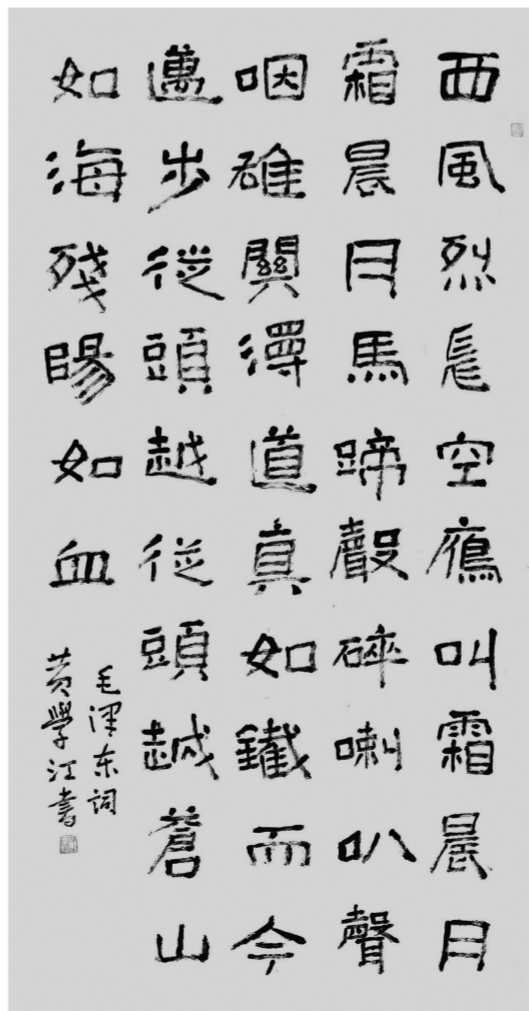 西風烈長空鴈叫霜晨月
霜晨月馬蹄聲碎喇叭聲
咽雄關漫道真如鐵而今
邁步從頭越從頭越蒼山
如海殘陽如血
毛泽东词
黄學江書